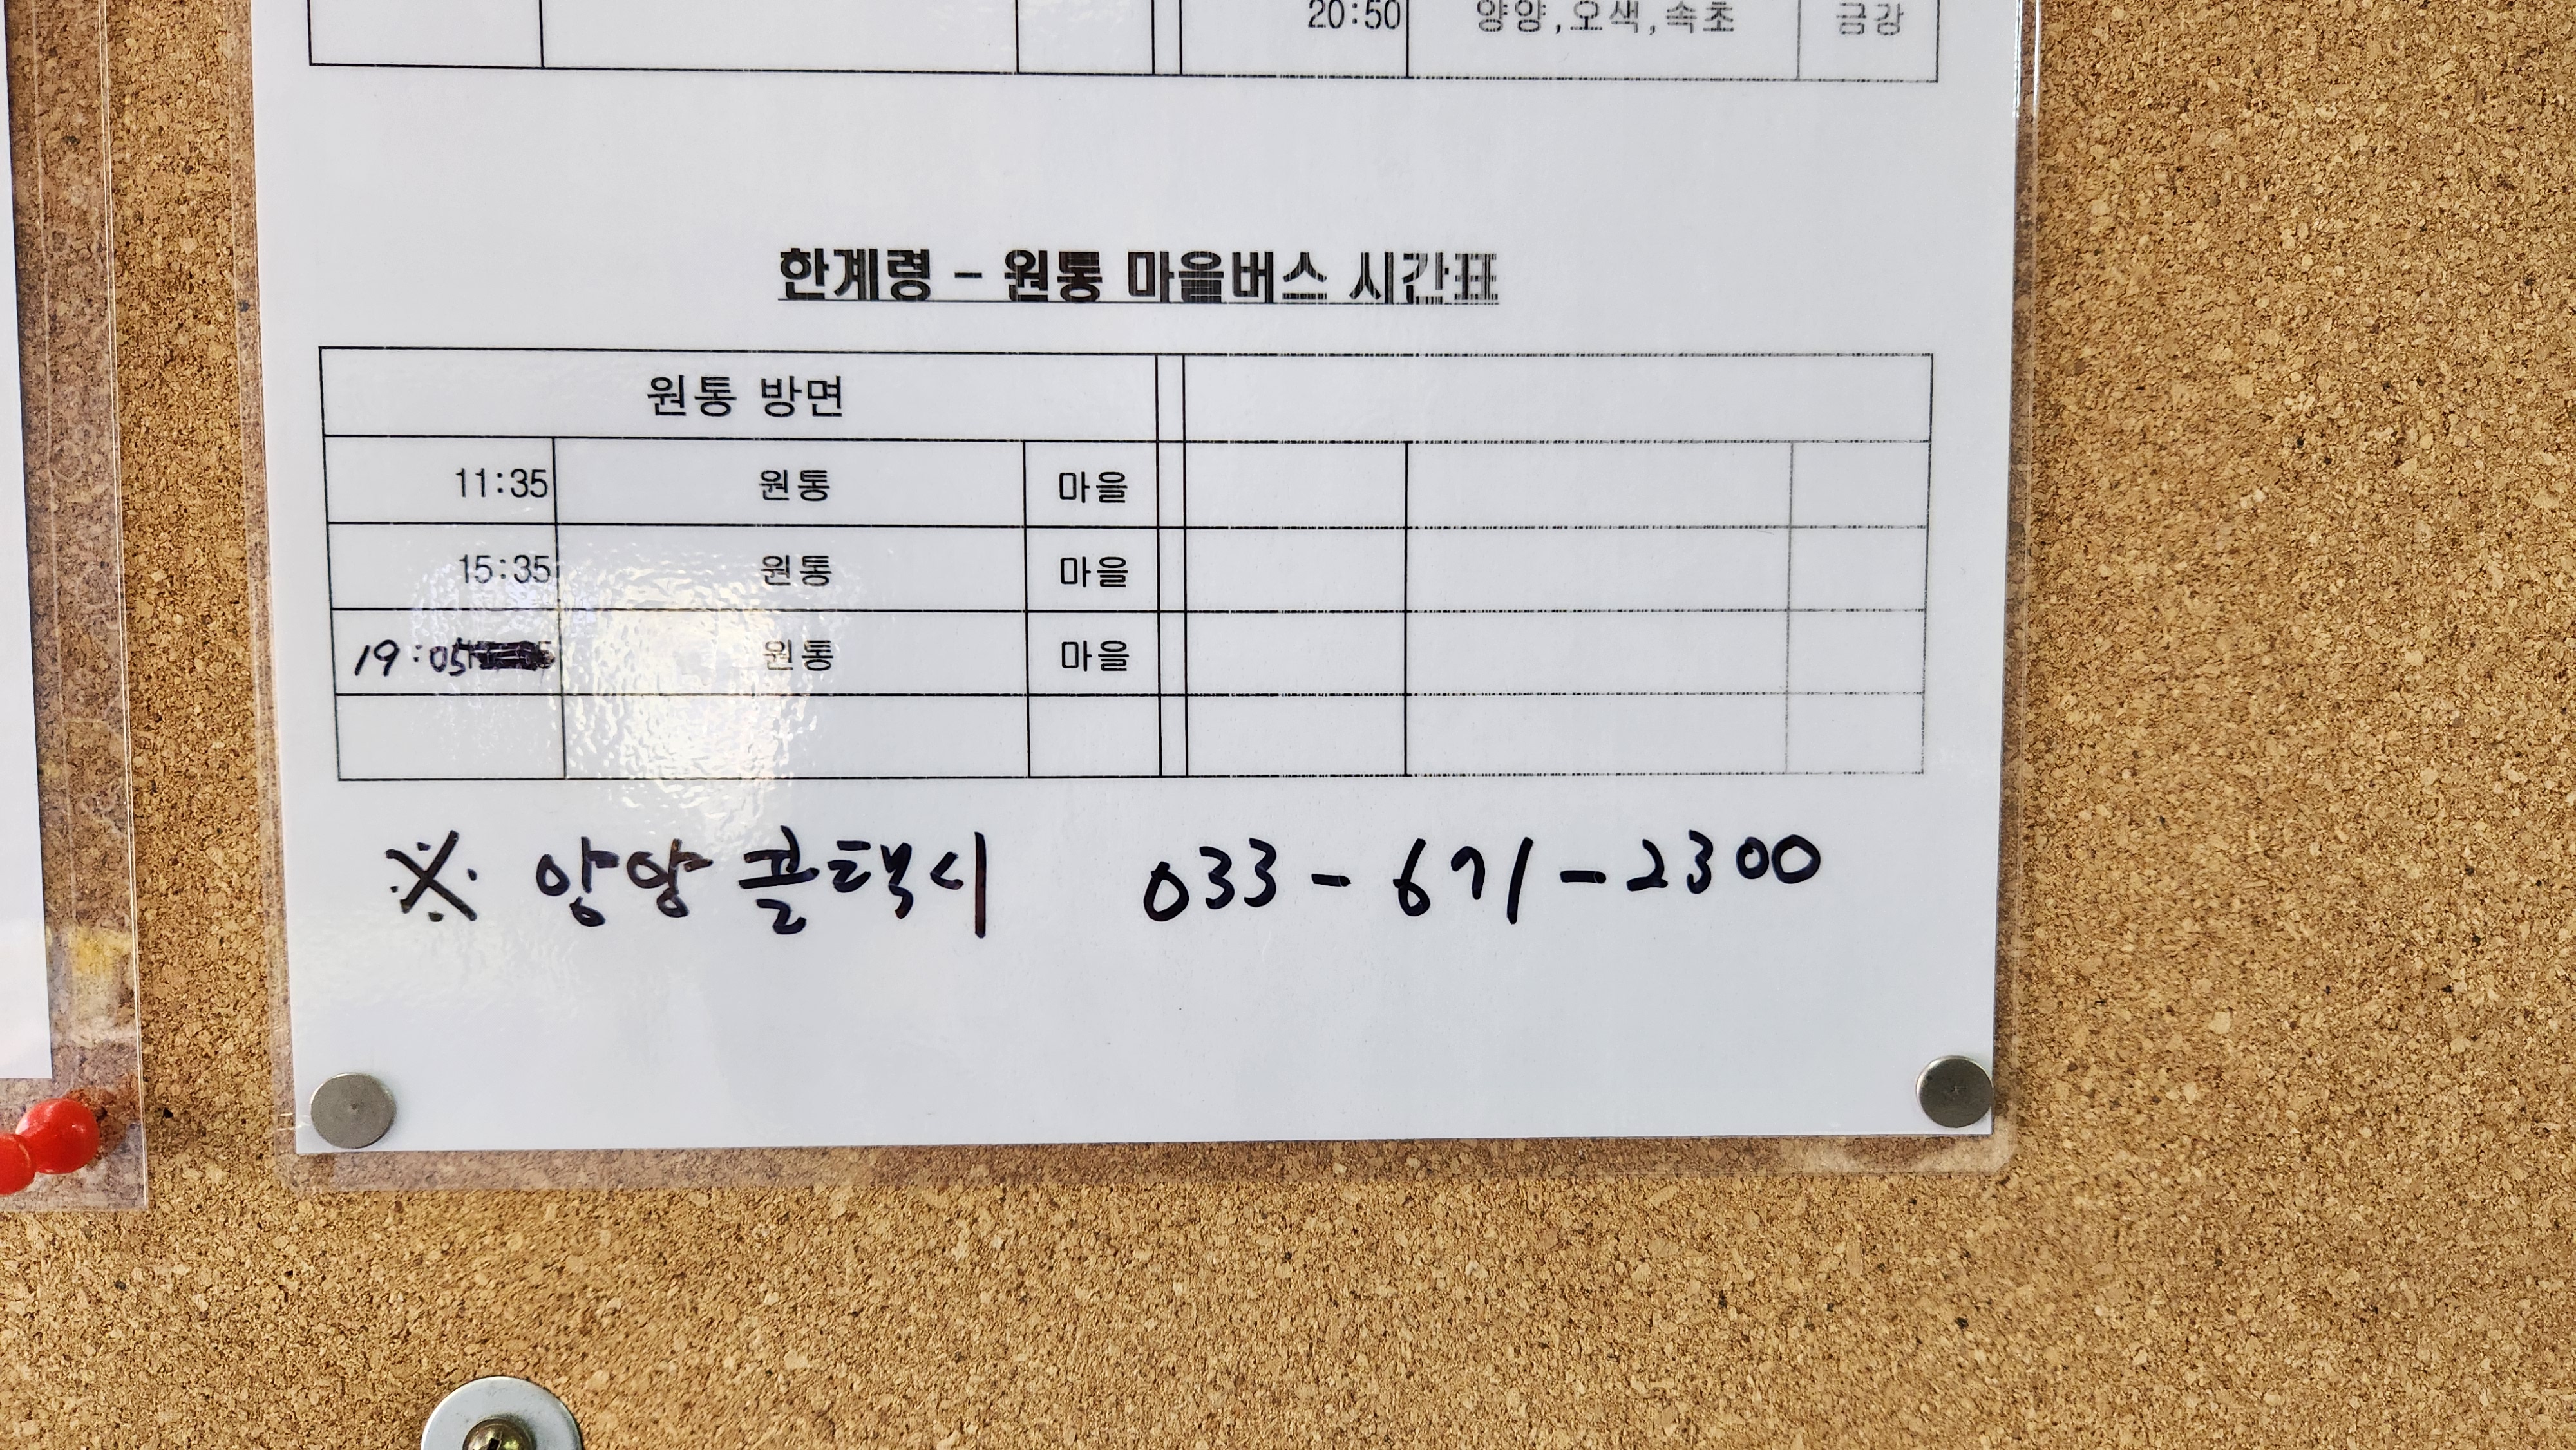 20:50 양양,오색,속초 금강
한계령 - 원통 마을버스 시간표
원통 방면
11:35 원통 마을
15:35 원통 마을
19:05 원통 마을
※ 양양콜택시 033-671-2300